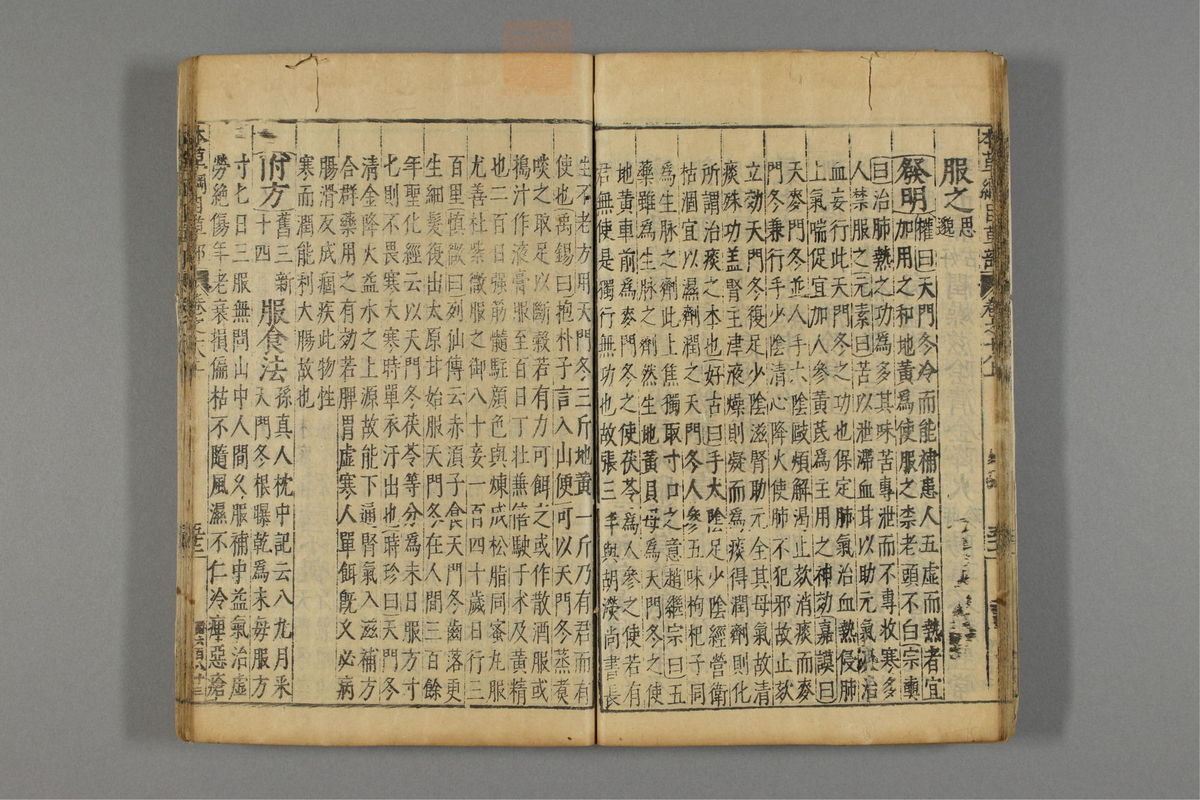 服之思邈
發明權曰天門冬冷而能補患人五虛而熱者宜
加用之和地黃爲使服之柰老頭不白宗奭
曰治肺熱之功爲多其味苦專泄而不專收寒多
人禁服之元素曰苦以泄滯血甘以助元氣及治
血妄行此天門冬之功也保定肺氣治血熱侵肺
上氣喘促宜加人參黃芪爲主用之神効嘉謨曰
天麥門冬並入手太陰歐煩解渴止欬消痰而麥
門冬兼行手少陰清心降火使肺不犯邪故止欬
立効天門冬復足少陰滋腎助元全其母氣故清
痰殊功盖腎主津液燥則凝而爲痰得潤劑則化
所謂治痰之本也好古曰手太陰足少陰經營衛
枯涸宜以濕劑潤之天門冬人參五味枸杞子同
爲生脉之劑此上焦獨取寸口之意趙繼宗曰五
藥雖爲生脉之劑然生地黃貝母爲天門冬之使
地黃車前爲麥門冬之使茯苓爲人參之使若有
君無使是獨行無功也故張三丰與胡濙尚書長
生不老方用天門冬三斤地黃一斤乃有君而有
使也禹錫曰抱朴子言入山便可以天門冬蒸煮
啖之取足以斷穀若有力可餌之或作散酒服或
擣汁作液膏服至百日丁壯兼倍駛于术及黃精
也二百日强筋髓駐顔色與煉成松脂同蜜丸服
尤善杜紫微服之御八十妾一百四十歲日行三
百里慎微曰列仙傳云赤湏子食天門冬齒落更
生細髮復出太原甘始服天門冬在人間三百餘
年聖化經云以天門冬茯苓等分爲末日服方寸
七則不畏寒大寒時單衣汗出也時珍曰天門冬
清金降火益水之上源故能下通腎氣入滋補方
合群藥用之有効若脾胃虛寒人單餌旣久必病
腸滑反成痼疾此物性
寒而潤能利大腸故也
附方舊三新十四服食法孫真人枕中記云八九月采天門冬根曝乾爲末每服方
寸七日三服無問山中人間久服補中益氣治虛
勞絶傷年老衰損偏枯不隨風濕不仁冷痺惡瘡